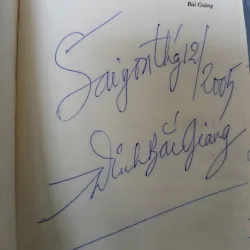 Bùi Giáng
Saigon thg 12/2005
Đình Bắc Giang